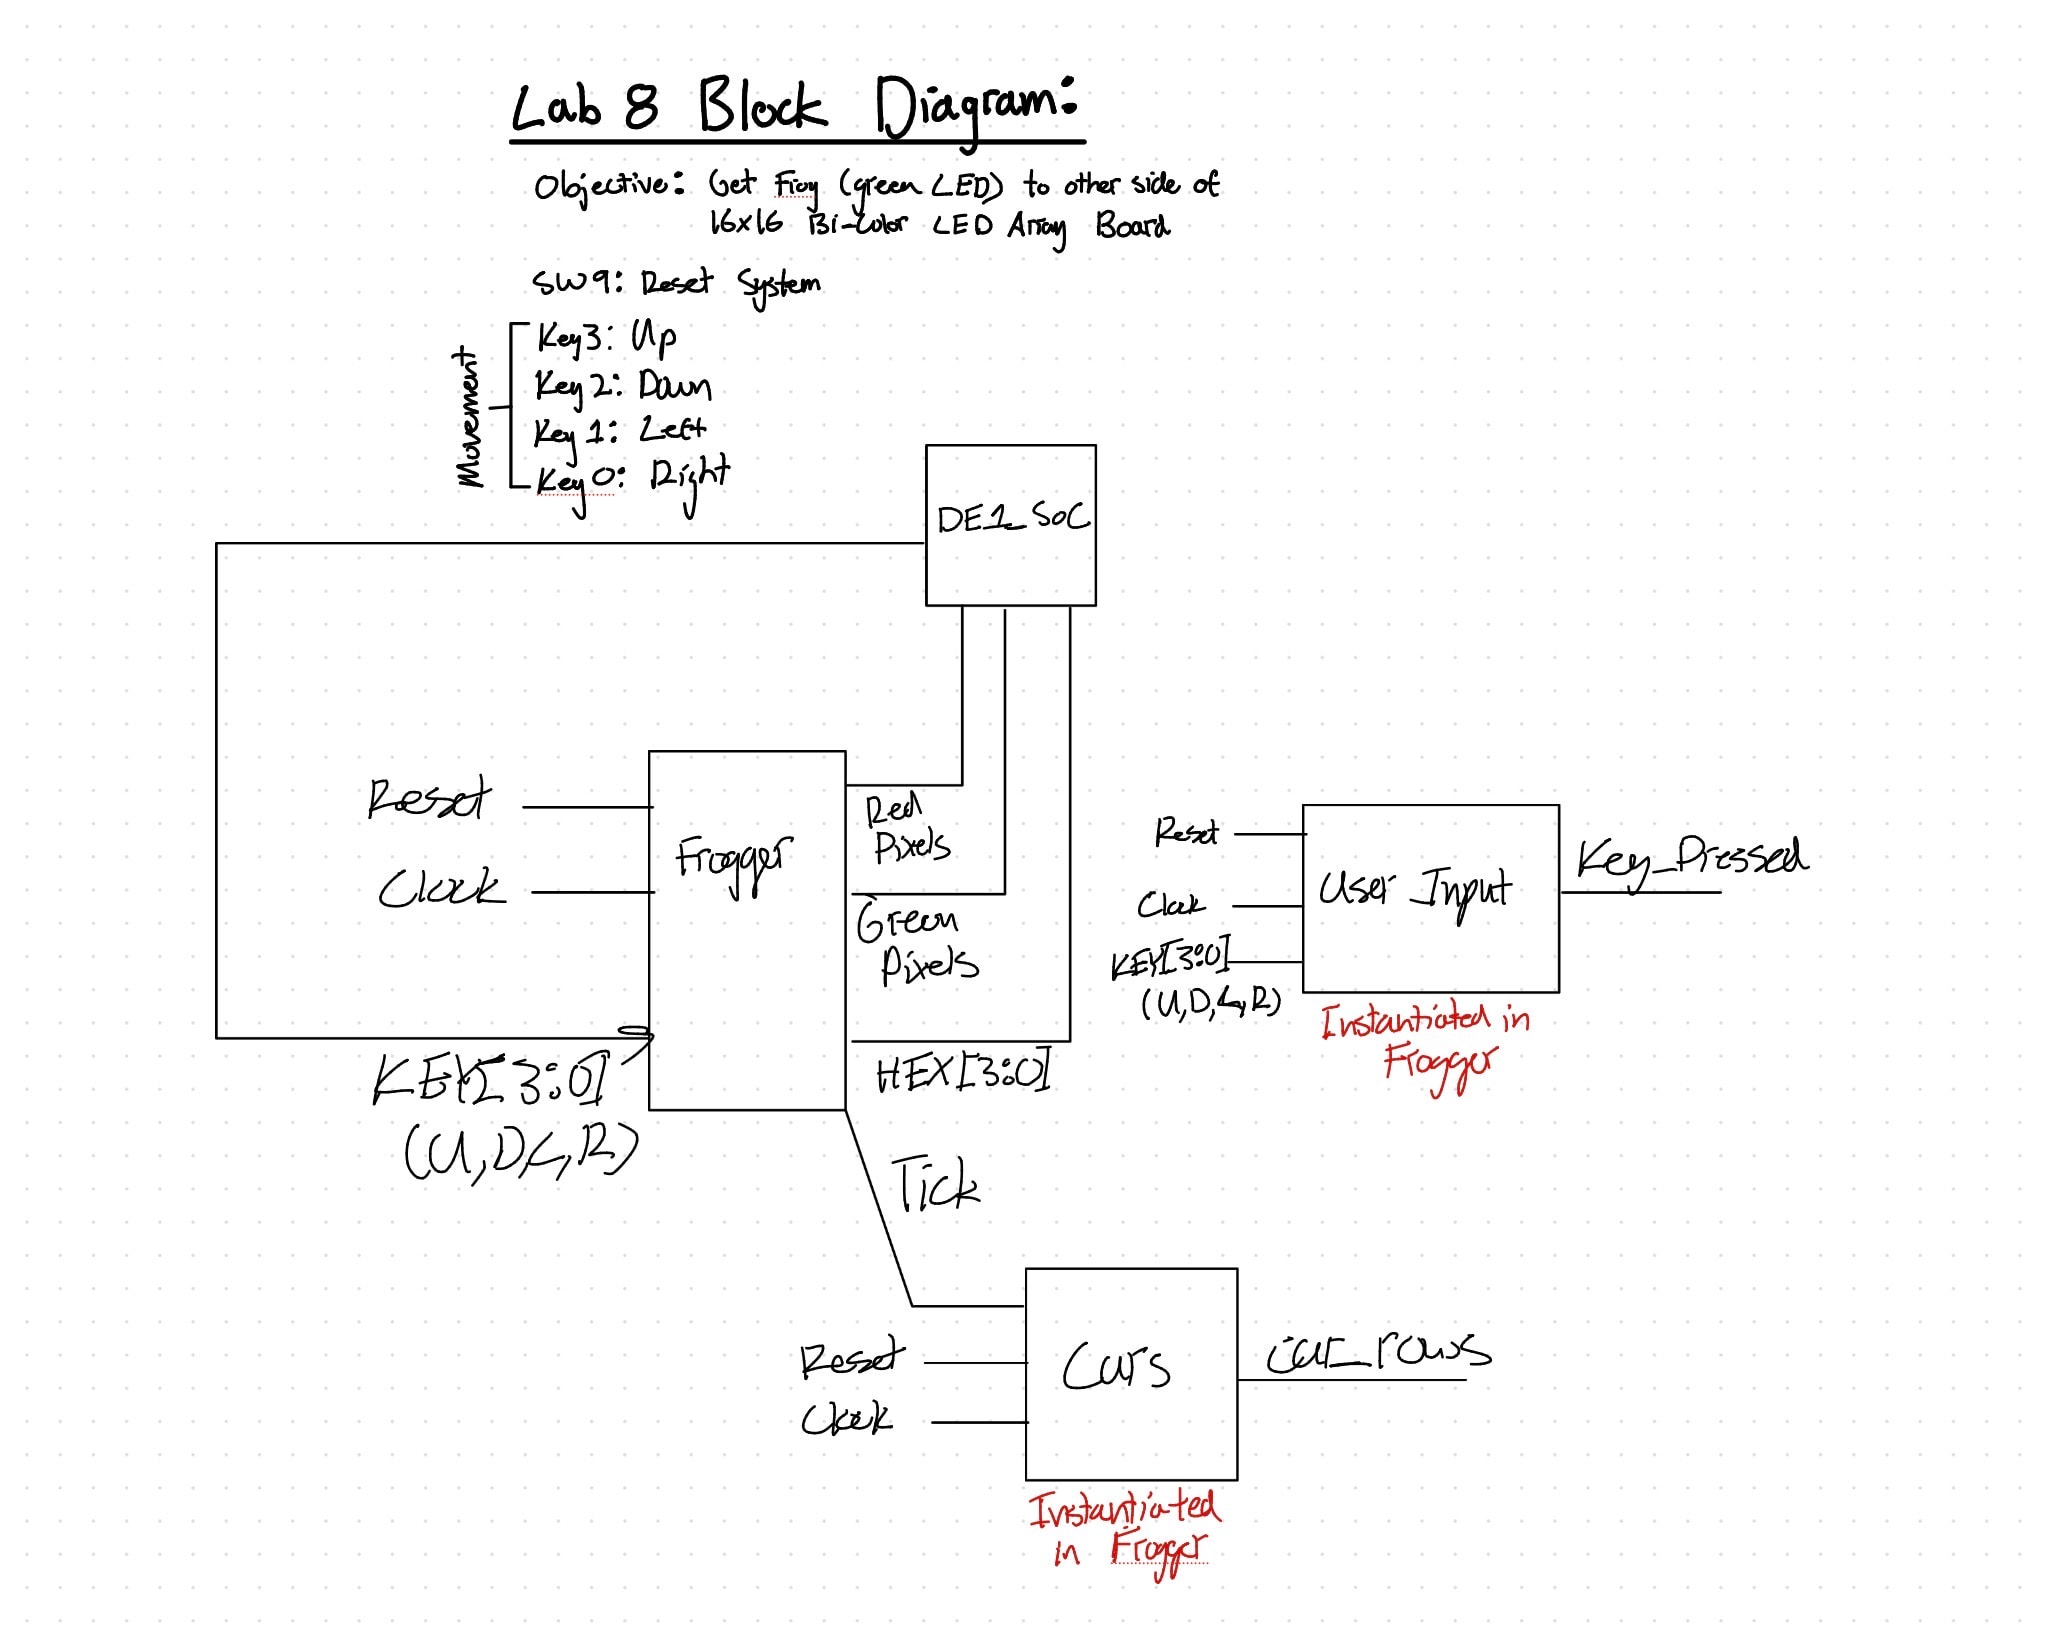 Lab 8 Block Diagram:
Objective: Get Frog (green LED) to other side of
16x16 Bi-Color LED Array Board
SW9: Reset System
Movement
Key3: Up
Key2: Down
Key1: Left
Key0: Right
DE1_SoC
Reset
Clock
KEY[3:0]
(U,D,L,R)
Frogger
Red
Pixels
Green
Pixels
HEX[3:0]
Tick
Reset
Clock
KEY[3:0]
(U,D,L,R)
User_Input
Key_Pressed
Instantiated in
Frogger
Reset
Clock
Cars
car_rows
Instantiated
in Frogger